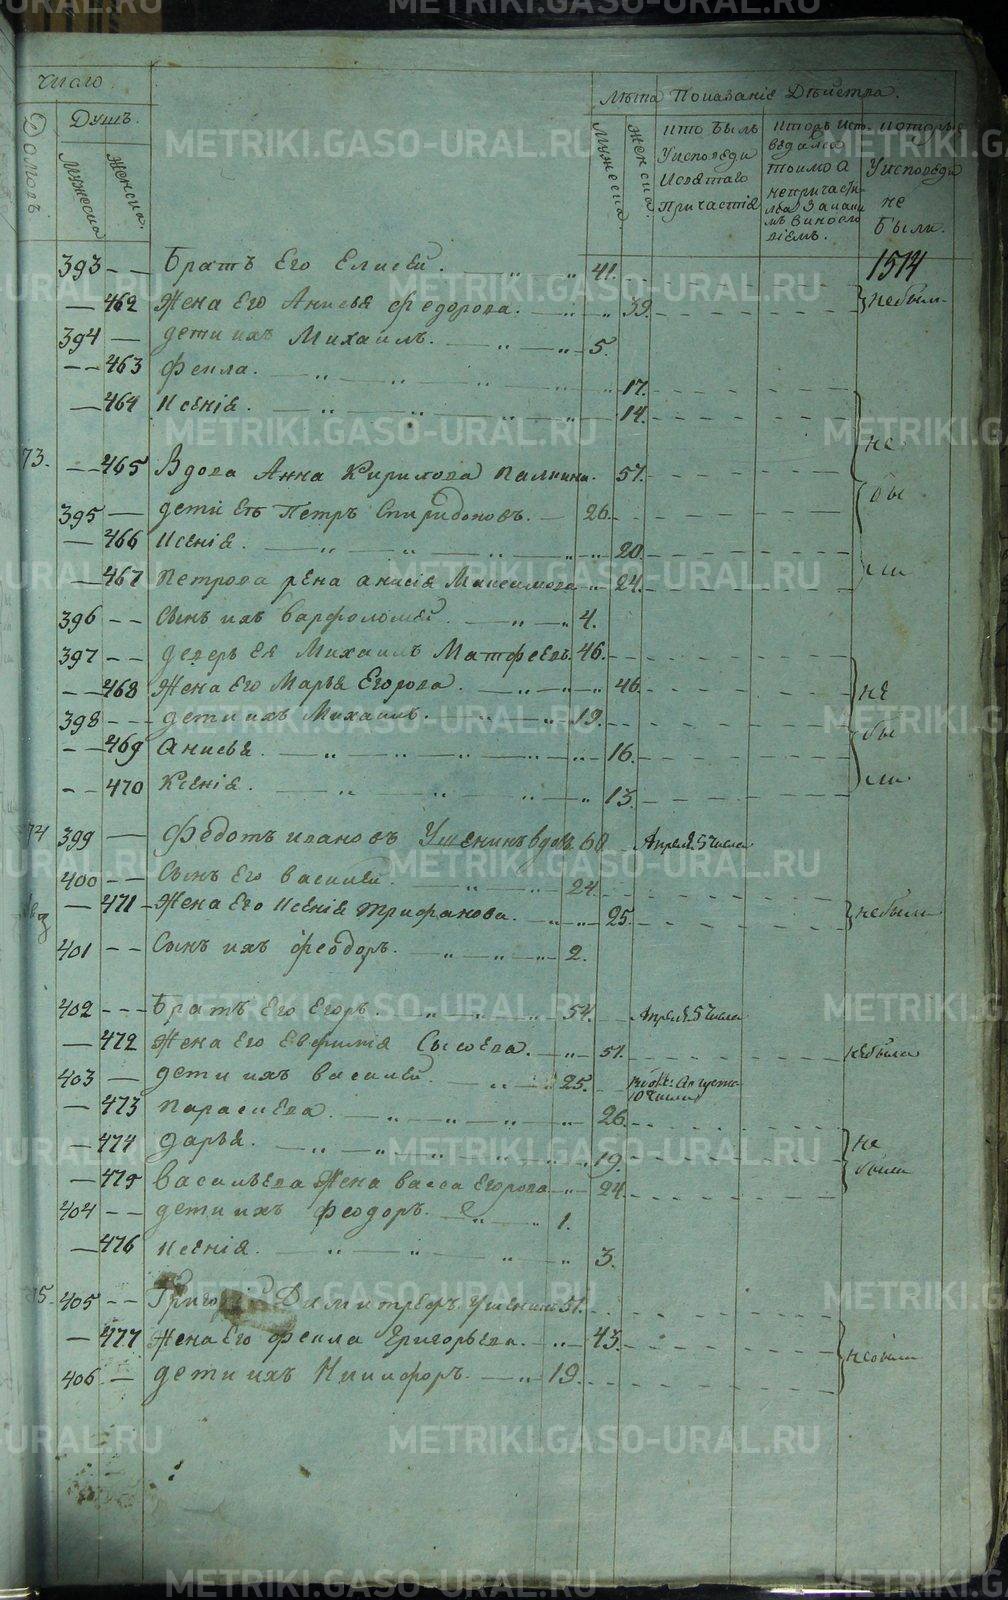 METRIKI.GASO-URAL.RU
Число
Домовъ
Душъ.
Мужеска
Женска.
Лѣта
Показанiе Дѣйства.
Мужеска
Женска.
кто былъ
У исповеди
И святаго
Причастiя
У исповеди
не
были.
1514
393 Братъ Его Елисей. 41.
462 Жена Его Анисья Федорова. 39. не были
394 дети ихъ Михаилъ. 5.
463 Фекла. 17.
464 Ксенiя. 14.
73. 465 Вдова Анна Кирилова 57.
не бы ли
395 дети Ея Петръ Спиридоновъ. 26.
466 Ксенiя. 20.
467 Петрова жена анисiя Максимова 24.
396 Сынъ ихъ Варфоломей. 4.
397 деверь ея Михаилъ Матфеевъ. 46.
468 Жена Его Марья Егорова. 46.
не бы ли
398 дети ихъ Михаилъ. 19.
469 Анисья. 16.
470 Ксенiя. 13.
74 399 Федотъ ивановъ вдовъ 68 Апреля 5 числа
400 Сынъ Его Василей. 24.
471 Жена Его Ксенiя Трифанова. 25. не были
401 Сынъ ихъ Феодоръ. 2.
402 Братъ Его Егоръ. 54. Апреля 5 числа
472 Жена Его Евфимiя Сысоева. 51. не была
403 дети ихъ Василей. 25. Августа
10 числа
473 Параскева. 26.
474 дарья. 19.
не были
475 Васильева Жена Васса Егорова 24.
404 дети ихъ Феодоръ. 1.
476 Ксенiя. 3.
75. 405 Григорей Димитреевъ 51.
477 Жена Его Фекла Григорьева. 43.
не были
406 дети ихъ Никифоръ. 19.